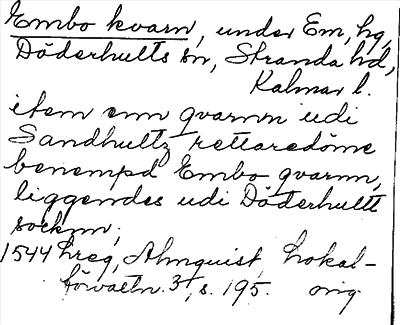 Embo kvarn, under Em, hg,
Döderhults sn, Stranda hd,
Kalmar l.
item enn qvarnn udi
Sandhultz rettaredöme
benempd Embo qvarnn,
liggendes udi Döderhultt
socknn,
1544 hreg, Almquist, Lokal-
förvaltn. 3, s. 195. orig.